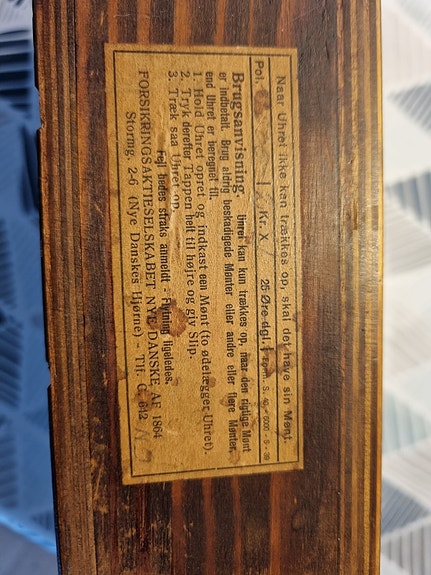 Naar Uhret ikke kan trækkes op, skal det have sin Mønt.
Pol. 1 Kr. X 25 Øre dgl.
Brugsanvisning. Uhret kan kun trækkes op, naar den rigtige Mønt
er indbetalt. Brug aldrig beskadigede Mønter eller andre eller flere Mønter,
end Uhret er beregnet til.
1. Hold Uhret opret og indkast een Mønt (to ødelægger Uhret).
2. Tryk derefter Tappen helt til højre og giv Slip.
3. Træk saa Uhret op.
Fejl bedes straks anmeldt - Flytning ligeledes.
FORSIKRINGSAKTIESELSKABET NYE DANSKE AF 1864
Stormg. 2-6 (Nye Danskes Hjørne) - Tlf. C. 642